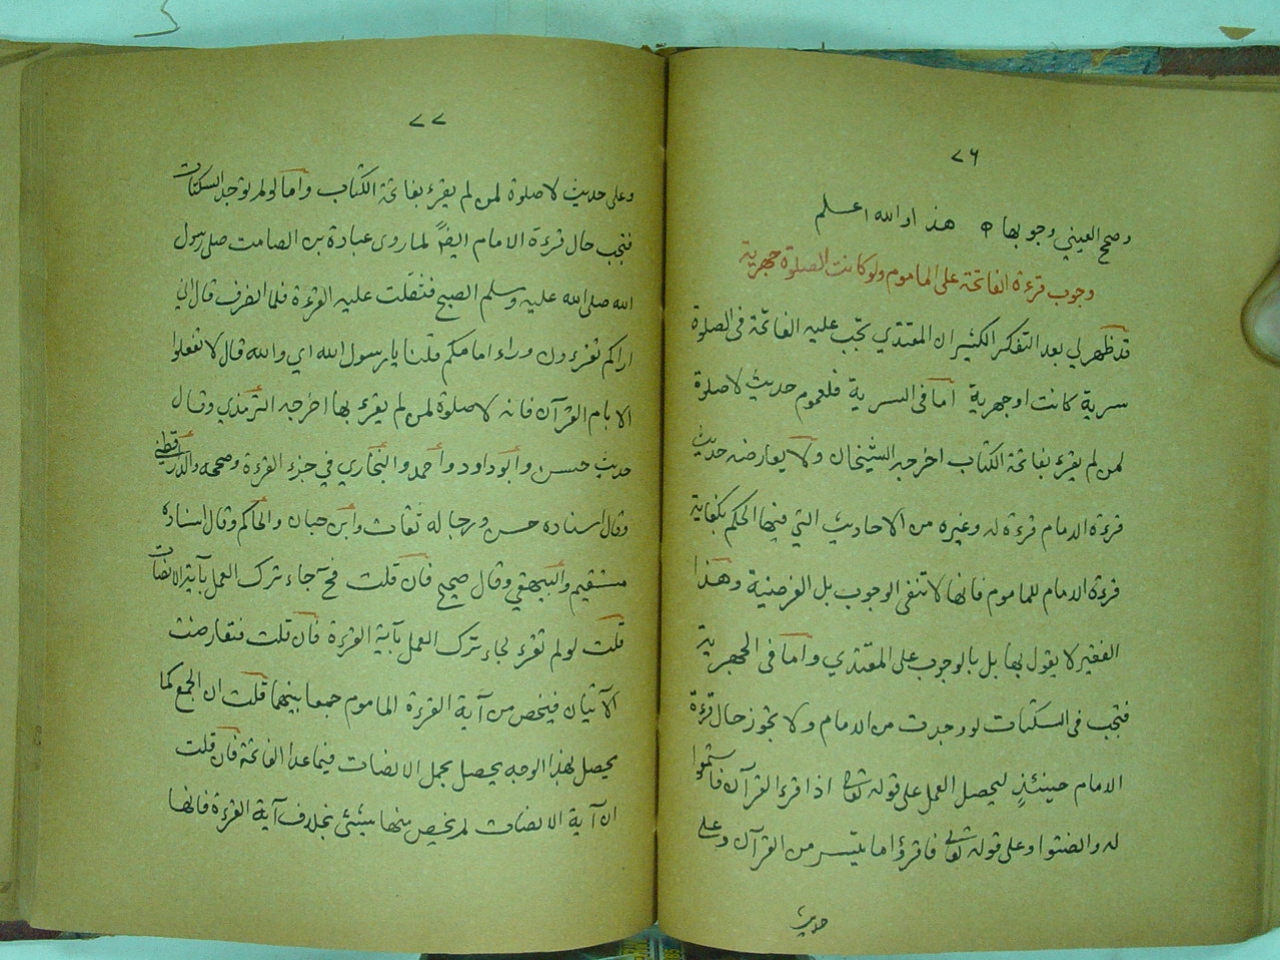 ٧٦
وصح العيني وجوبها هذا والله اعلم
وجوب قرءة الفاتحة على الماموم ولو كانت الصلوة جهرية
قد ظهر لي بعد التفكر الكثير ان المقتدي تجب عليه الفاتحة فى الصلوة
سرية كانت او جهرية اما فى السرية فلعموم حديث لا صلوة
لمن لم يقرء بفاتحة الكتاب اخرجه الشيخان ولا يعارضه حديث
قرءة الامام قرءة له وغيره من الاحاديث التي فيها الحكم بكفاية
قرءة الامام للماموم فانها لا تنفى الوجوب بل الفرضية وهذا
الفقير لا يقول بها بل بالوجوب على المقتدي واما فى الجهرية
فتجب فى السكتات لو وجدت من الامام ولا يجوز حال قرءة
الامام حينئذٍ ليحصل العمل على قوله تعالى اذا قرء القرآن فاستمعوا
له وانصتوا وعلى قوله تعالى فاقرؤا ما تيسر من القرآن وعلى
حديث
٧٧
وعلى حديث لا صلوة لمن لم يقرء بفاتحة الكتاب واما لو لم توجد السكتات
فتجب حال قرءة الامام ايضاً لما روى عبادة بن الصامت صلى رسول
الله صلى الله عليه وسلم الصبح فثقلت عليه القرءة فلما انصرف قال اني
اراكم تقرءون وراء امامكم قلنا يا رسول الله اي والله قال لا تفعلوا
الا بام القرآن فانه لا صلوة لمن لم يقرء بها اخرجه الترمذي وقال
حديث حسن وأبو داود وأحمد والبخاري في جزء القرءة وصححه والدارقطني
وقال اسناده حسن ورجاله ثقات وابن حبان والحاكم وقال اسناده
مستقيم والبيهقي وقال صحيح فان قلت فح جاء ترك العمل بآية الانصات
قلت لو لم تقرء لجاء ترك العمل بآية القرءة فان قلت فتعارضت
الآيتان فيخص من آية القرءة الماموم جمعا بينهما قلت ان الجمع كما
يحصل بهذا الوجه يحصل بحمل الانصات فيما عدا الفاتحة فان قلت
ان آية الانصات لم يخص منها شئ بخلاف آية القرءة فانها